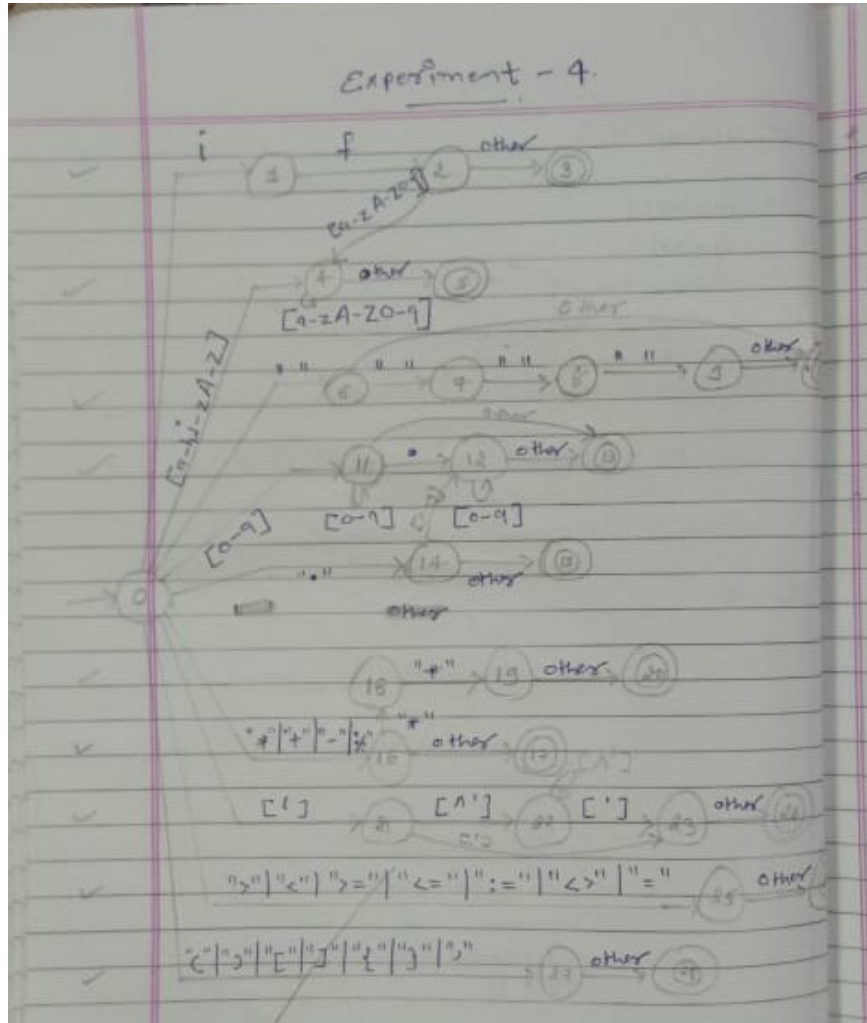 Experiment - 4.
i f other
1 2 3
[a-zA-Z0-9]
4 other 5
[a-zA-Z0-9]
other
[a-hj-zA-Z]
" " " " " " " " other
6 7 8 9
other
11 . 12 other 13
[0-9] [0-9]
[0-9]
14 other 15
"."
0
other
18 "*" 19 other 20
"*"
"*"|"+"|"-"| 16 other 17
[^']
['] [^'] ['] other
21 22 23 24
[']
">"|"<"|">="|"<="|":="|"<>"|"=" 25 other
"("|")"|"["|"]"|"{"|"}"|","
27 other 28